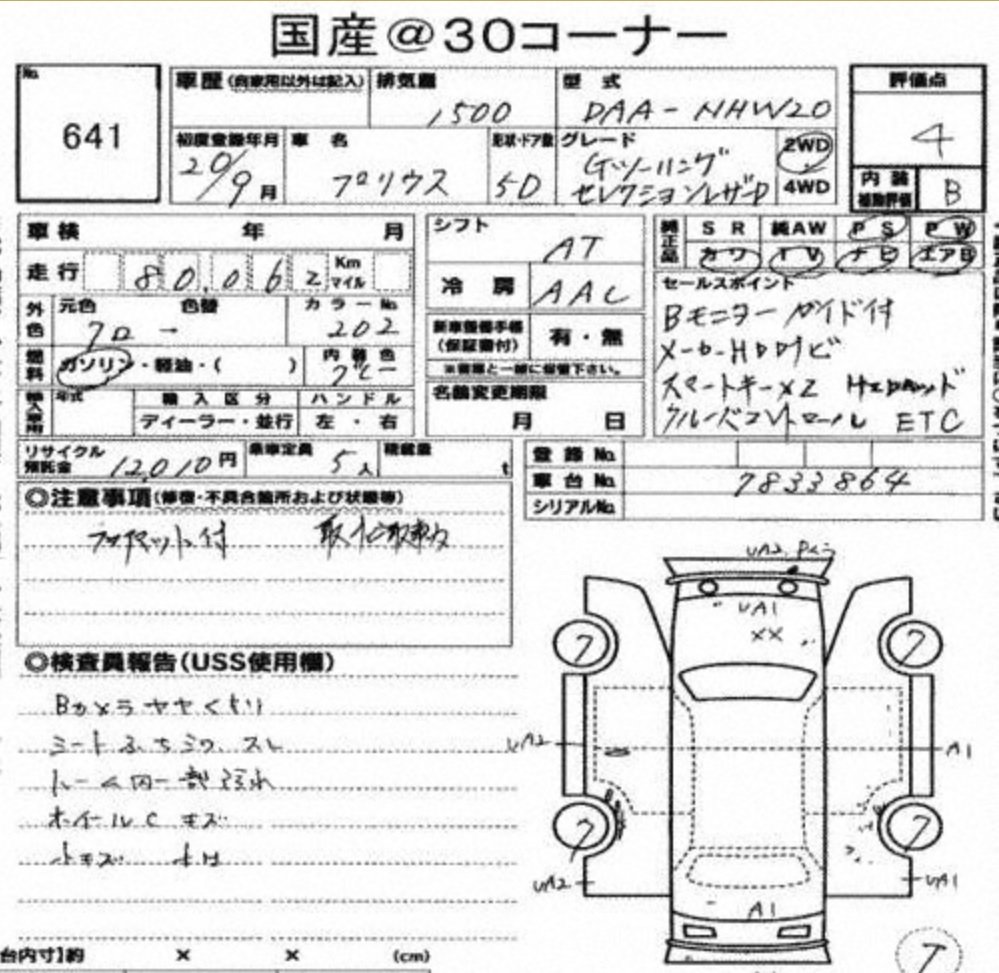 国産@30コーナー
No.
641
車歴 (自家用以外は記入)
排気量
1500
型式
DAA-NHW20
評価点
4
内装
補助評価
B
初度登録年月
20/9月
車名
プリウス
形状・ドア数
5D
グレード
Gツーリング
セレクションレザーP
2WD
4WD
車検 年 月
走行 80,062 Km マイル
外色
元色
色替
カラーNo.
クロ →
202
燃料
ガソリン・軽油・( )
内装色
グレー
輸入車用
年式
輸入区分
ハンドル
ディーラー・並行
左・右
シフト
AT
冷房
AAC
新車整備手帳
(保証書付)
有・無
※書類と一緒に保管下さい。
名義変更期限
月 日
純正品
SR 純AW PS PW
カワ TV ナビ エアB
セールスポイント
Bモニター ガイド付
メーカーHDDナビ
スマートキー×2 HIDヘッド
クルーズコントロール ETC
リサイクル
預託金
12,010円
乗車定員
5人
積載量
t
登録No.
車台No.
7833864
シリアルNo.
◎注意事項(修復・不具合箇所および状態等)
フロアマット付
◎検査員報告(USS使用欄)
Bカメラヤヤくもり
シート
ルーム内一部汚れ
ホイールCキズ
小キズ
UA2
UA1
XX
7
7
UA2
A1
7
7
UA2
UA1
A1
台内寸】約 × × (cm)
7